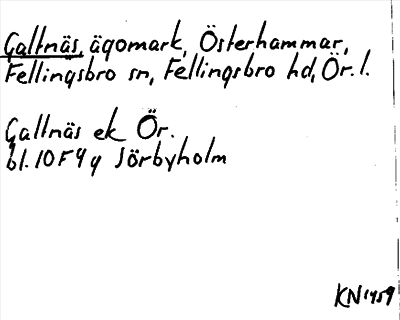 Galtnäs, ägomark, Österhammar,
Fellingsbro sn, Fellingsbro hd, Ör. l.
Gallnäs ek Ör.
bl. 10F4y Sörbyholm
KN 1959